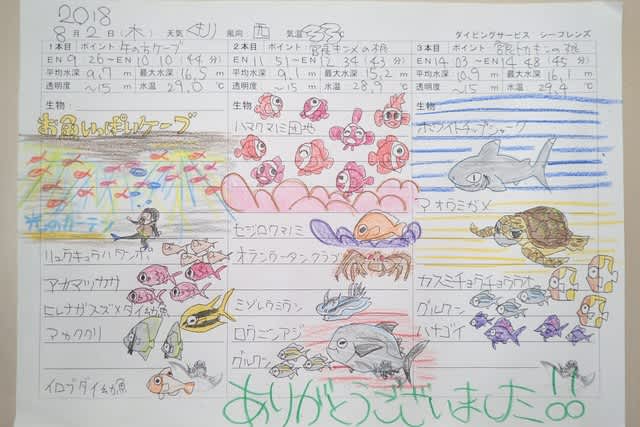 2018
8月2日(木) 天気 くもり 風向 西 気温
ダイビングサービス シーフレンズ
1本目 ポイント 午の方ケーブ
EN 9:26~EN 10:10 (44分)
平均水深 9.7m 最大水深 16.5m
透明度 ~15m 水温 29.0℃
生物:
お魚いっぱいケーブ
光のカーテン
リュウキュウハタンポ
アカマツカサ
ヒレナガスズメダイ幼魚
アカククリ
イロブダイ幼魚
2本目 ポイント
EN 11:51~EN 12:34 (43分)
平均水深 9.1m 最大水深 15.2m
透明度 ~15m 水温 28.9℃
生物:
ハマクマノミ団地
セジロクマノミ
オランウータンクラブ
ミゾレウミウシ
ロウニンアジ
グルクン
3本目 ポイント
EN 14:03~EN 14:48 (45分)
平均水深 10.9m 最大水深 16.1m
透明度 ~15m 水温 29.4℃
生物:
ホワイトチップシャーク
アオウミガメ
カスミチョウチョウウオ
グルクン
ハナゴイ
ありがとうございました!!